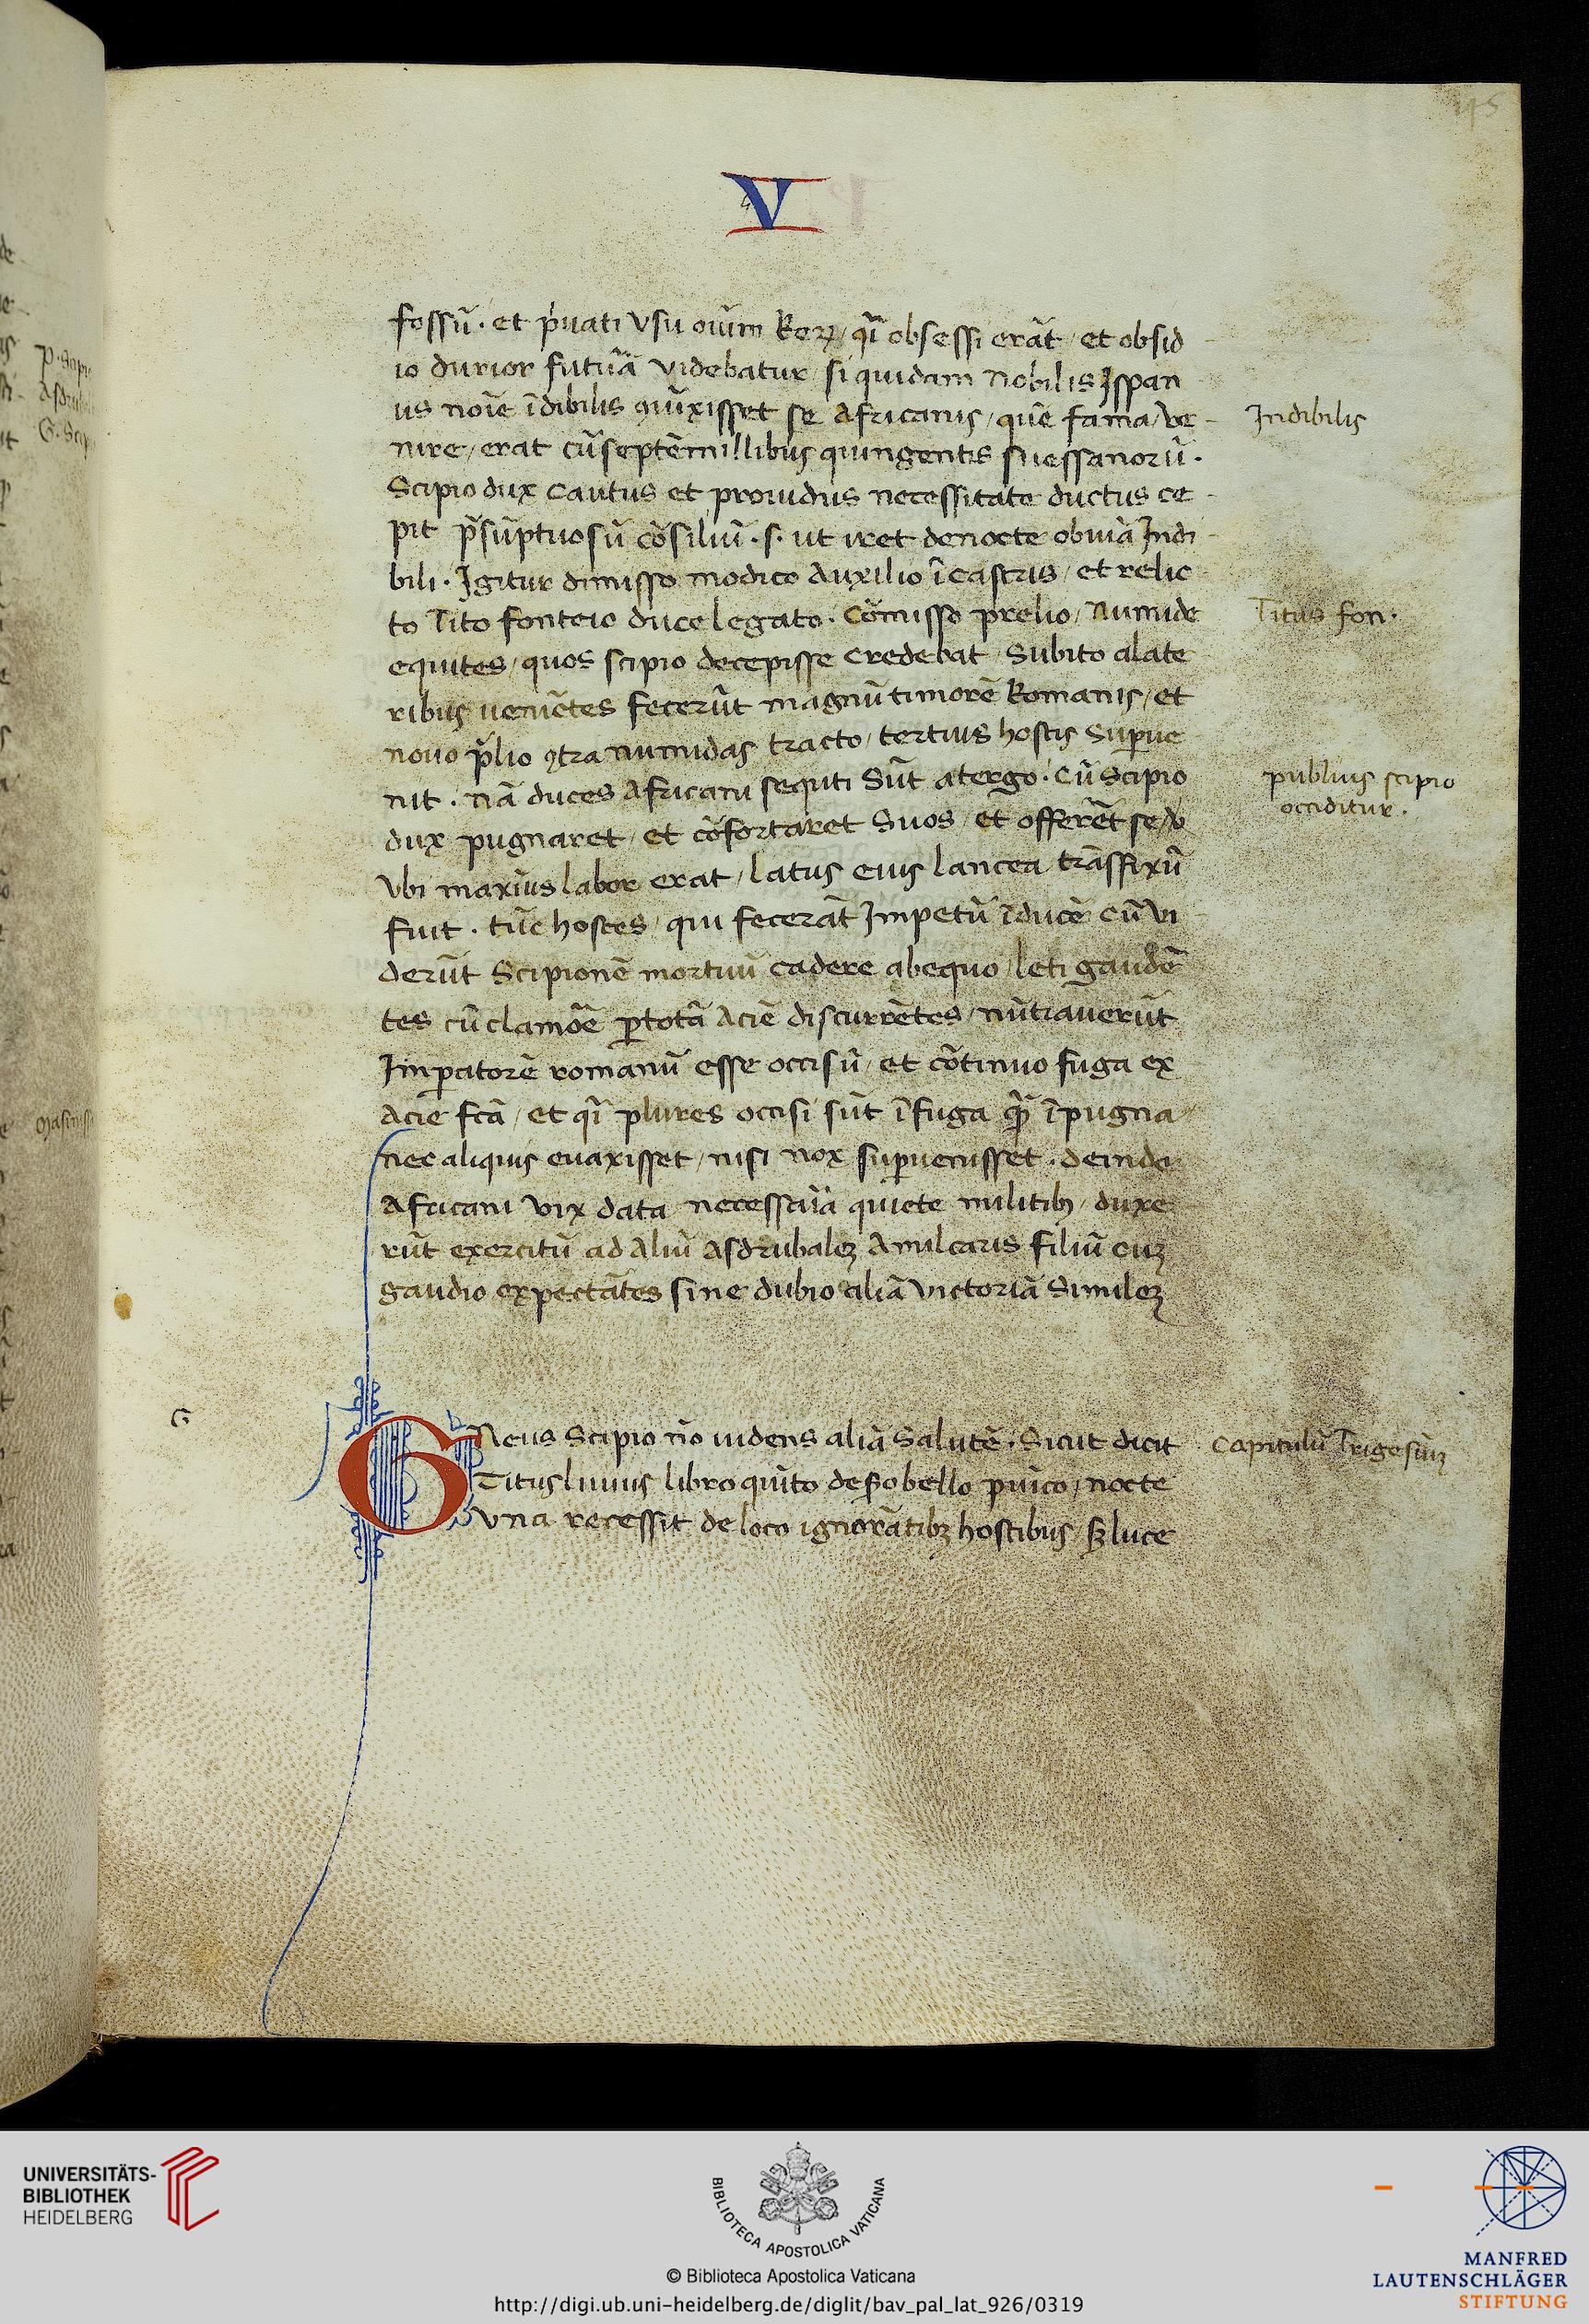 145
V
fossū · et p̍uati vsu oīum Rerꝝ / qͣı̄ obsessi erāt / et obsid
io durior futuͣā videbatur / si quidam nobilis Jspan
us noīe īdibilis ꝯiūxisset se Africanis / quē fama / ve
nire / erat cū septēmillibus quingentis suessanorū ·
Scipio dux cautus et prouidus necessitate ductus ce
pit p̄sūptuosū cōsiliū · s · ut iret denocte obuiā Indi
bili · Igitur dimisso modico auxilio ī castris / et relic
to Tito fonteio duce legato · Cōmisso prelio / Numide
equites / quos scipio decepisse credebat / Subito alate
ribus ueniētes fecerūt magnū timorē Romanis / et
nouo p̄lio ꝯtra numidas tracto / tertius hostis Suꝑue
nit · nā duces Africani sequti Sūt atergo · cū Scipio
dux pugnaret / et cōfortaret Suos / et offerēt se /
vbi maxīus labor erat / latus eius lancea trāsfixū
fuit · tūc hostes / qui fecerāt Impetū ī ducē cū vi
derūt Scipionē mortuū cadere abequo / leti gaudē
tes cū clamōe ꝑtotā aciē discurrētes / nūtiauerūt
Imꝑatorē romanū esse occisū / et cōtinuo fuga ex
acie fcā / et qͣı̄ plures occisi sūt ī fuga qͣꝫ̄ ī pugna
nec aliquis euaxisset / nisi nox suꝑuenisset · deinde
Africani vix data necessaīa quiete militibꝫ / duxe
rūt exercitū ad aliū Asdrubaleꝫ Amilcaris filiū cuꝫ
gaudio expectātes sine dubio aliā victoriā Simileꝫ
GNeus Scipio nō uidens aliā Salutē · Sicut dicit
Titus liuius libro quīto de s̄o bello puīco / nocte
vna recessit de loco ignorātibꝫ hostibus / sꝫ luce
Indibilis
Titus fon ·
publius scipio
occiditur ·
capitulū Trigesīuꝫ
G
UNIVERSITÄTS-
BIBLIOTHEK
HEIDELBERG
BIBLIOTECA APOSTOLICA VATICANA
© Biblioteca Apostolica Vaticana
http://digi.ub.uni-heidelberg.de/diglit/bav_pal_lat_926/0319
MANFRED
LAUTENSCHLÄGER
STIFTUNG